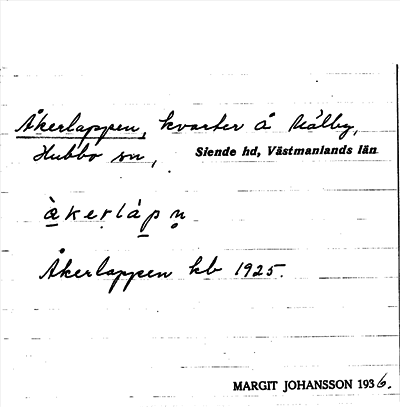 Åkerlappen, kvarter å Målby,
Hubbo sn, Siende hd, Västmanlands län
å̀kerláp n̥
Åkerlappen kb 1925.
MARGIT JOHANSSON 1936.